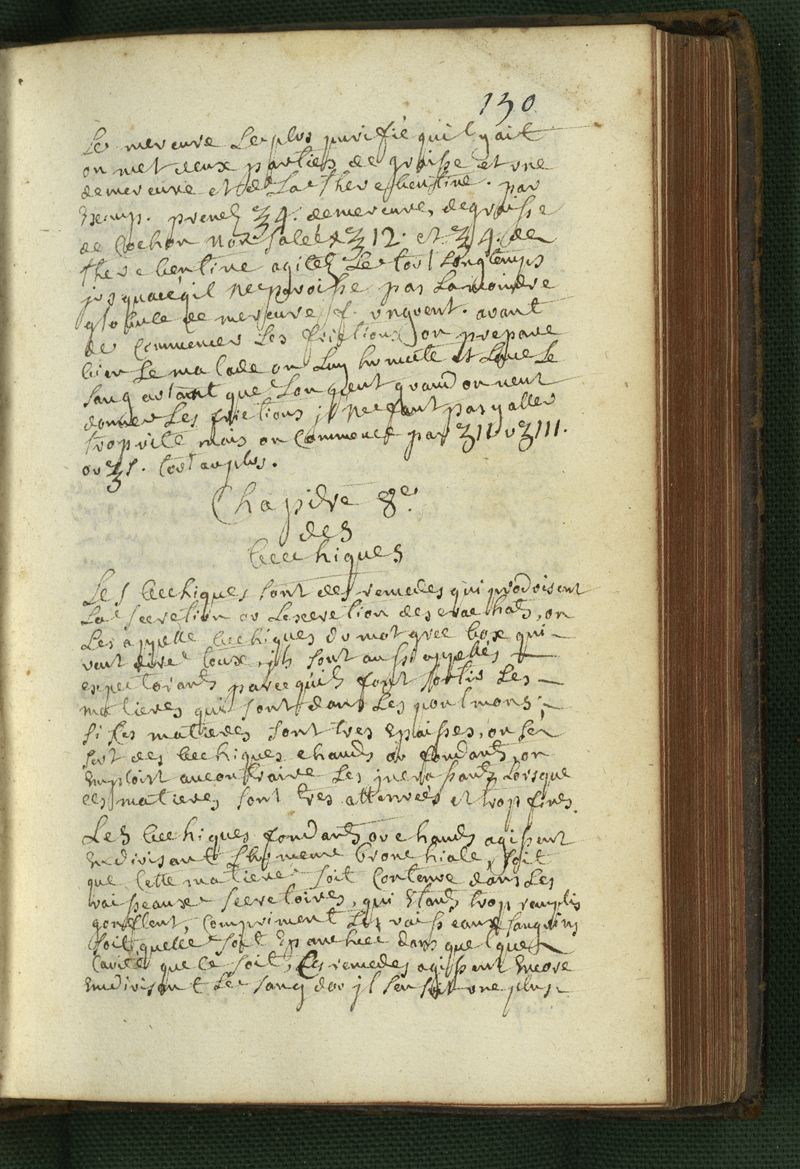 130
Le mercure Le plus purifié quil y ait
on met deux parties de graisse et une
de mercure et de La therebentine. par
Exemp. prenez ʒ 4. de mercure, de graisse
de Cochon non Salée ʒ 12. et ʒ 4. de
therebentine agitez Le tout Longtemps
jusquacequil ne paroisse pas Lamoindre
globule de mercure f. unguent. avant
de Commencer Les frictions on prepare
bien Le malade on Luy humecte et Lave Le
Sang autant que Lon peut quand on veut
donner Les frictions jl ne faut pas y aller
trop vite mais on Commence par ʒ II. v ʒ III.
ou ʒ s. tout au plus.
Chapitre 8e.
des
becchiques
Les becchiques sont des remedes qui produisent
La Secretion ou Lexcretion des crachats, on
Les appelle becchiques du mot grec box qui
veut dire toux, jls sont aussi appellés
expectorants parcequils font sortir Les
matieres qui sont dans Les poulmons;
si Les matieres sont tres Epaisses, on se
sert des becchiques chauds ou fondants, on
Emploit aucontraire Les jncrassants Lorsque
ces matieres sont tres attenuées et trop fines.
Les becchiques fondants ou chauds agissent
En divisant Lhumeur bronchiale, soit
que Cette matiere soit Contenue dans Les
vaisseaux Secretoires, qui Etants trop remplis
gonflent, Compriment Les vaisseaux Sanguins
soit quelle soit Epanchée dans quelque
Cavité que Ce soit, Ces remedes agissent Encore
En divisant Le Sang dou jl sensuit une plus